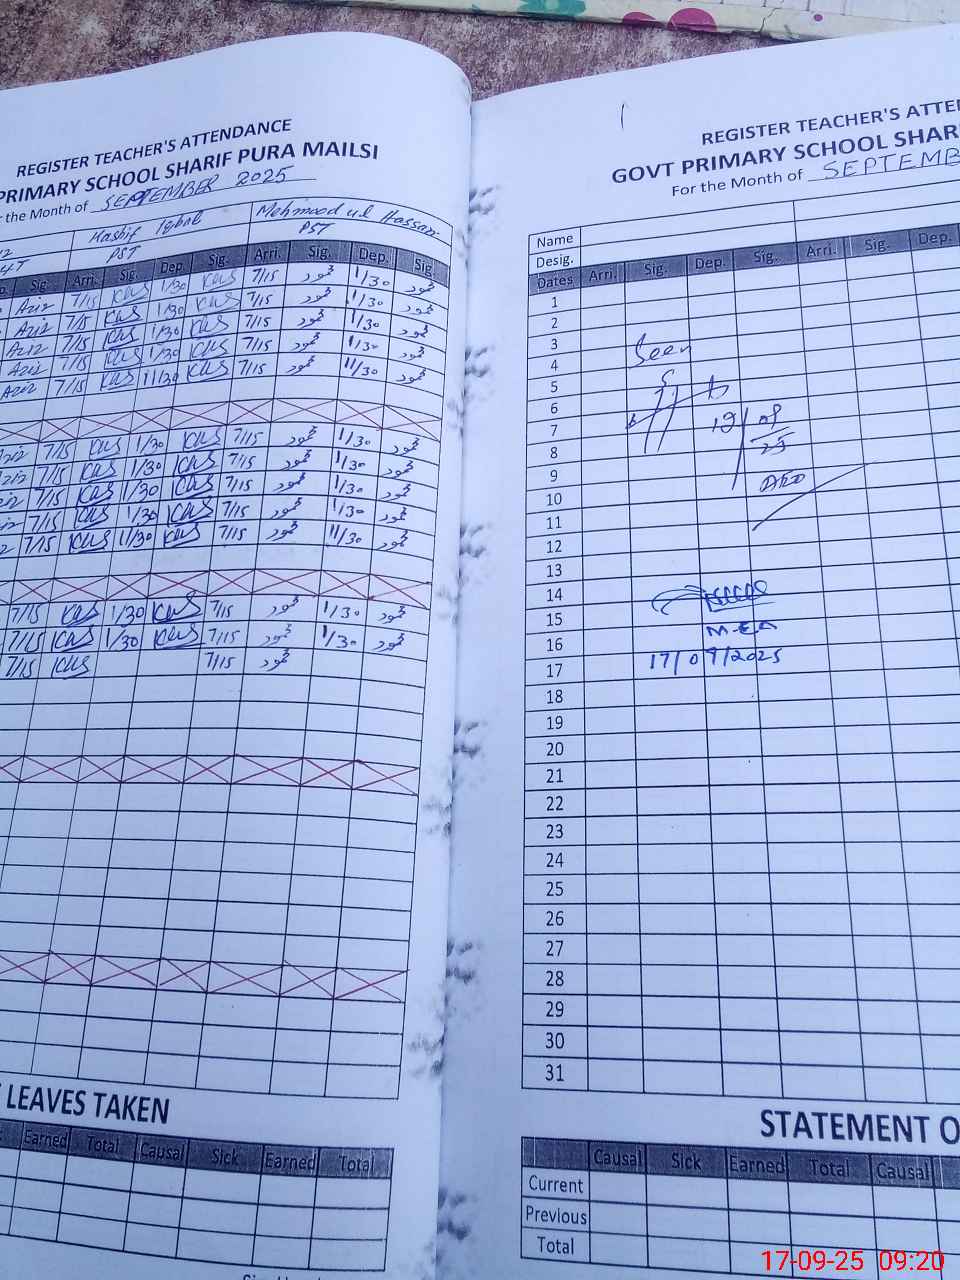 REGISTER TEACHER'S ATTENDANCE
PRIMARY SCHOOL SHARIF PURA MAILSI
the Month of SEPTEMBER 2025
Iqbal Mehmood ul Hassan
PST PST
Sig. Arri. Sig. Dep Sig. Arri. Sig. Dep. Sig.
Aziz 7/15 KMS 1/30 KMS 7/15 محمود 1/30 محمود
Aziz 7/15 KMS 1/30 KMS 7/15 محمود 1/30 محمود
Aziz 7/15 KMS 1/30 KMS 7/15 محمود 1/30 محمود
Aziz 7/15 KMS 1/30 KMS 7/15 محمود 1/30 محمود
Aziz 7/15 KMS 11/30 KMS 7/15 محمود 11/30 محمود
7/15 KMS 1/30 KMS 7/15 محمود 1/30 محمود
7/15 KMS 1/30 KMS 7/15 محمود 1/30 محمود
7/15 KMS 1/30 KMS 7/15 محمود 1/30 محمود
7/15 KMS 1/30 KMS 7/15 محمود 1/30 محمود
7/15 KMS 11/30 KMS 7/15 محمود 11/30 محمود
7/15 KMS 1/30 KMS 7/15 محمود 1/30 محمود
7/15 KMS 1/30 KMS 7/15 محمود 1/30 محمود
7/15 KMS 7/15 محمود
LEAVES TAKEN
Earned Total Causal Sick Earned Total
REGISTER TEACHER'S ATTEN
GOVT PRIMARY SCHOOL SHARI
For the Month of SEPTEMB
Name
Desig.
Dates Arri. Sig. Dep. Sig. Arri. Sig. Dep.
1
2
3
4 Seen
5
6
7
8
9
10
11
12
13
14
15
16 M-EA
17 17/09/2025
18
19
20
21
22
23
24
25
26
27
28
29
30
31
STATEMENT O
Causal Sick Earned Total Causal
Current
Previous
Total
17-09-25 09:20